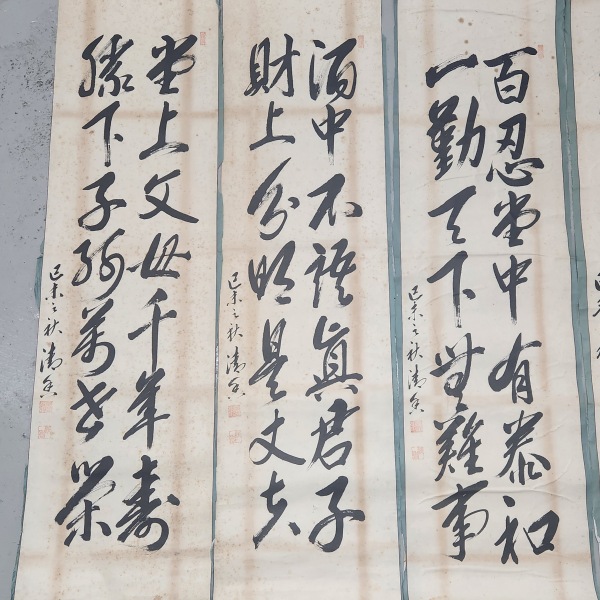 百忍堂中有泰和
一勤天下無難事
己未之秋
酒中不語眞君子
財上分明是丈夫
己未之秋
堂上父母千年壽
膝下子孫萬世榮
己未之秋